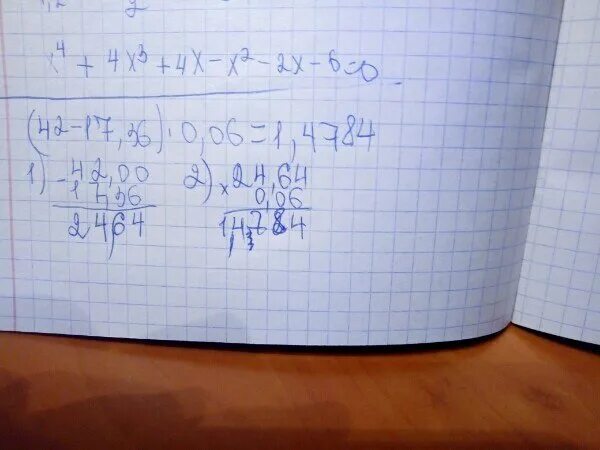 x⁴ + 4x³ + 4x - x² - 2x - 6 = 0
(42-17,36)·0,06=1,4784
1) - 42,00
17,36
24,64
2) x 24,64
0,06
1,4784